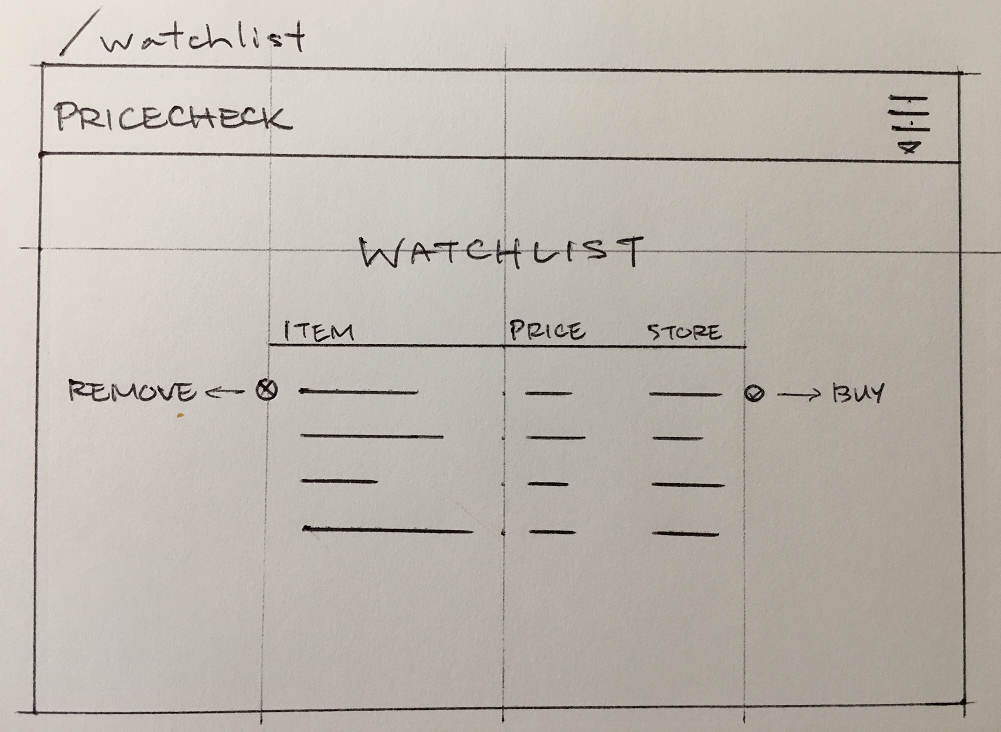 /watchlist
PRICECHECK
WATCHLIST
ITEM PRICE STORE
REMOVE ← ⊗ → BUY